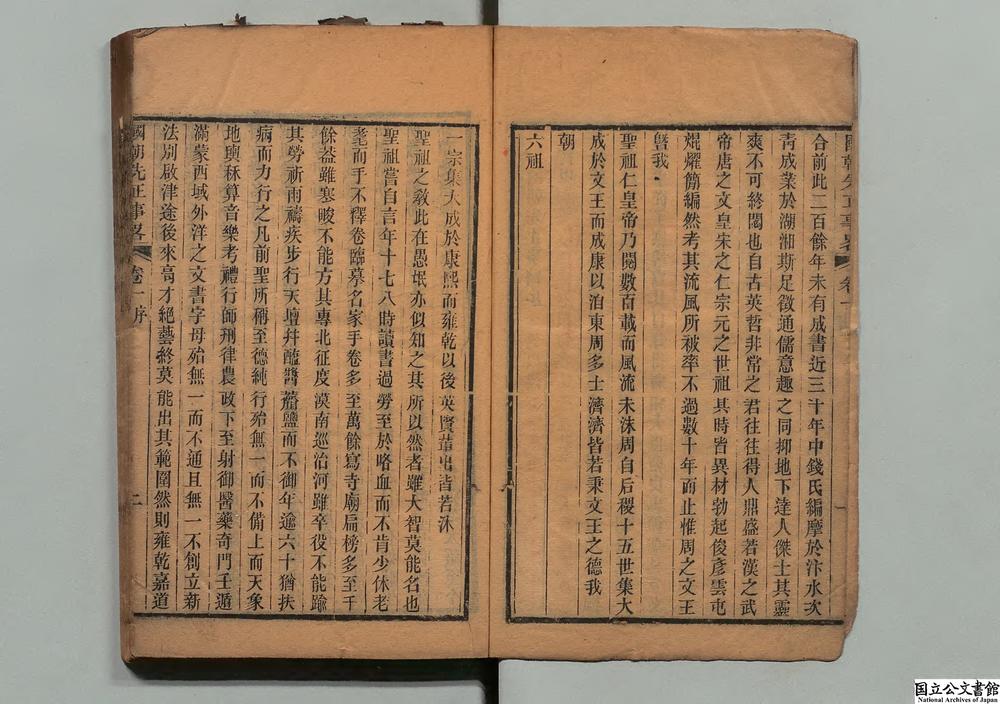 國朝先正事畧 卷一
合前此二百餘年未有成書近三十年中錢氏編摩於汴水次
青成業於湖湘斯足徵通儒意趣之同抑地下達人傑士其靈
爽不可終閟也自古英哲非常之君往往得人鼎盛若漢之武
帝唐之文皇宋之仁宗元之世祖其時皆異材勃起俊彥雲屯
焜燿簡編然考其流風所被率不過數十年而止惟周之文王
曁我
聖祖仁皇帝乃閱數百載而風流未沫周自后稷十五世集大
成於文王而成康以洎東周多士濟濟皆若秉文王之德我
朝
六祖
一
一宗集大成於康熙而雍乾以後英賢輩出皆若沐
聖祖之敎此在愚氓亦似知之其所以然者雖大智莫能名也
聖祖嘗自言年十七八時讀書過勞至於咯血而不肯少休老
耄而手不釋卷臨摹名家手卷多至萬餘寫寺廟扁榜多至千
餘葢雖寒畯不能方其專北征度漠南巡治河雖卒役不能踰
其勞祈雨禱疾步行天壇幷醯醬虀鹽而不御年逾六十猶扶
病而力行之凡前聖所稱至德純行殆無一而不備上而天象
地輿秝算音樂考禮行師刑律農政下至射御醫藥奇門壬遁
滿蒙西域外洋之文書字母殆無一而不通且無一不創立新
法別啟津途後來高才絕藝終莫能出其範圍然則雍乾嘉道
國朝先正事畧 卷一 序 二
国立公文書館
National Archives of Japan